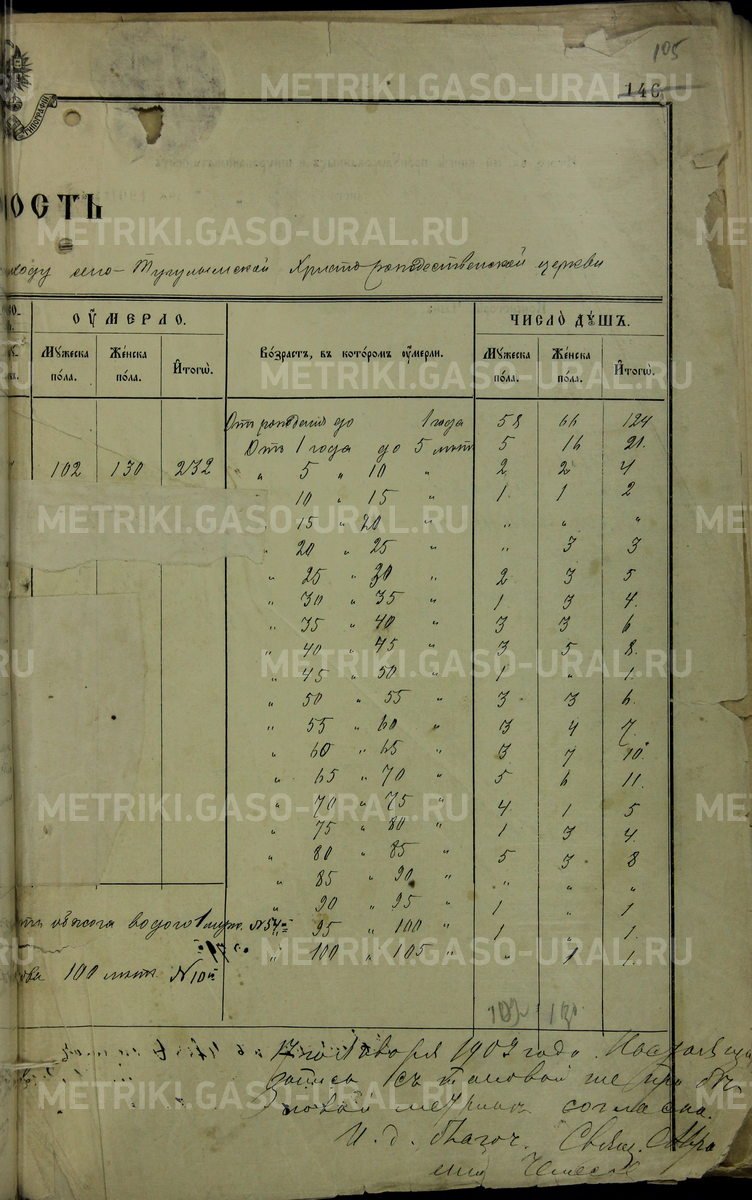 105
146
ТИПОГРАФІИ
ОСТЬ
села Тугулымской Христорождественской церкви
ОУМЕРЛО.
ЧИСЛО ДУШЪ.
Мужеска пола.
Женска пола.
Итогѡ.
Возрастъ, въ которомъ оумерли.
Мужеска пола.
Женска пола.
Итогѡ.
Отъ рожденія до 1 года 58 66 124
Отъ 1 года до 5 лѣтъ 5 16 21.
102 130 232 " 5 " 10 " 2 2 4
10 " 15 " 1 1 2
" 15 " 20 " " " "
" 20 " 25 " " 3 3
" 25 " 30 " 2 3 5
" 30 " 35 " 1 3 4.
" 35 " 40 " 3 3 6
" 40 " 45 " 3 5 8.
" 45 " 50 " 1 " 1.
" 50 " 55 " 3 3 6.
" 55 " 60 " 3 4 7.
" 60 " 65 " 3 7 10.
" 65 " 70 " 5 6 11.
" 70 " 75 " 4 1 5
" 75 " 80 " 1 3 4.
" 80 " 85 " 5 3 8
" 85 " 90 " " " "
" 90 " 95 " 1 " 1
обжога водою 1 муж. №54й " 95 " 100 " 1 " 1.
" 100 " 105 " " 1 1.
100 лѣтъ №10й
102 130
января 1902 года. Настоящая
запись съ таковой же
метрикѣ согласна.
И. д. благоч. Свящ.
METRIKI.GASO-URAL.RU